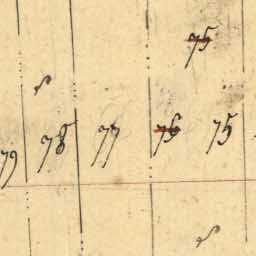 75
79 78 77 76 75